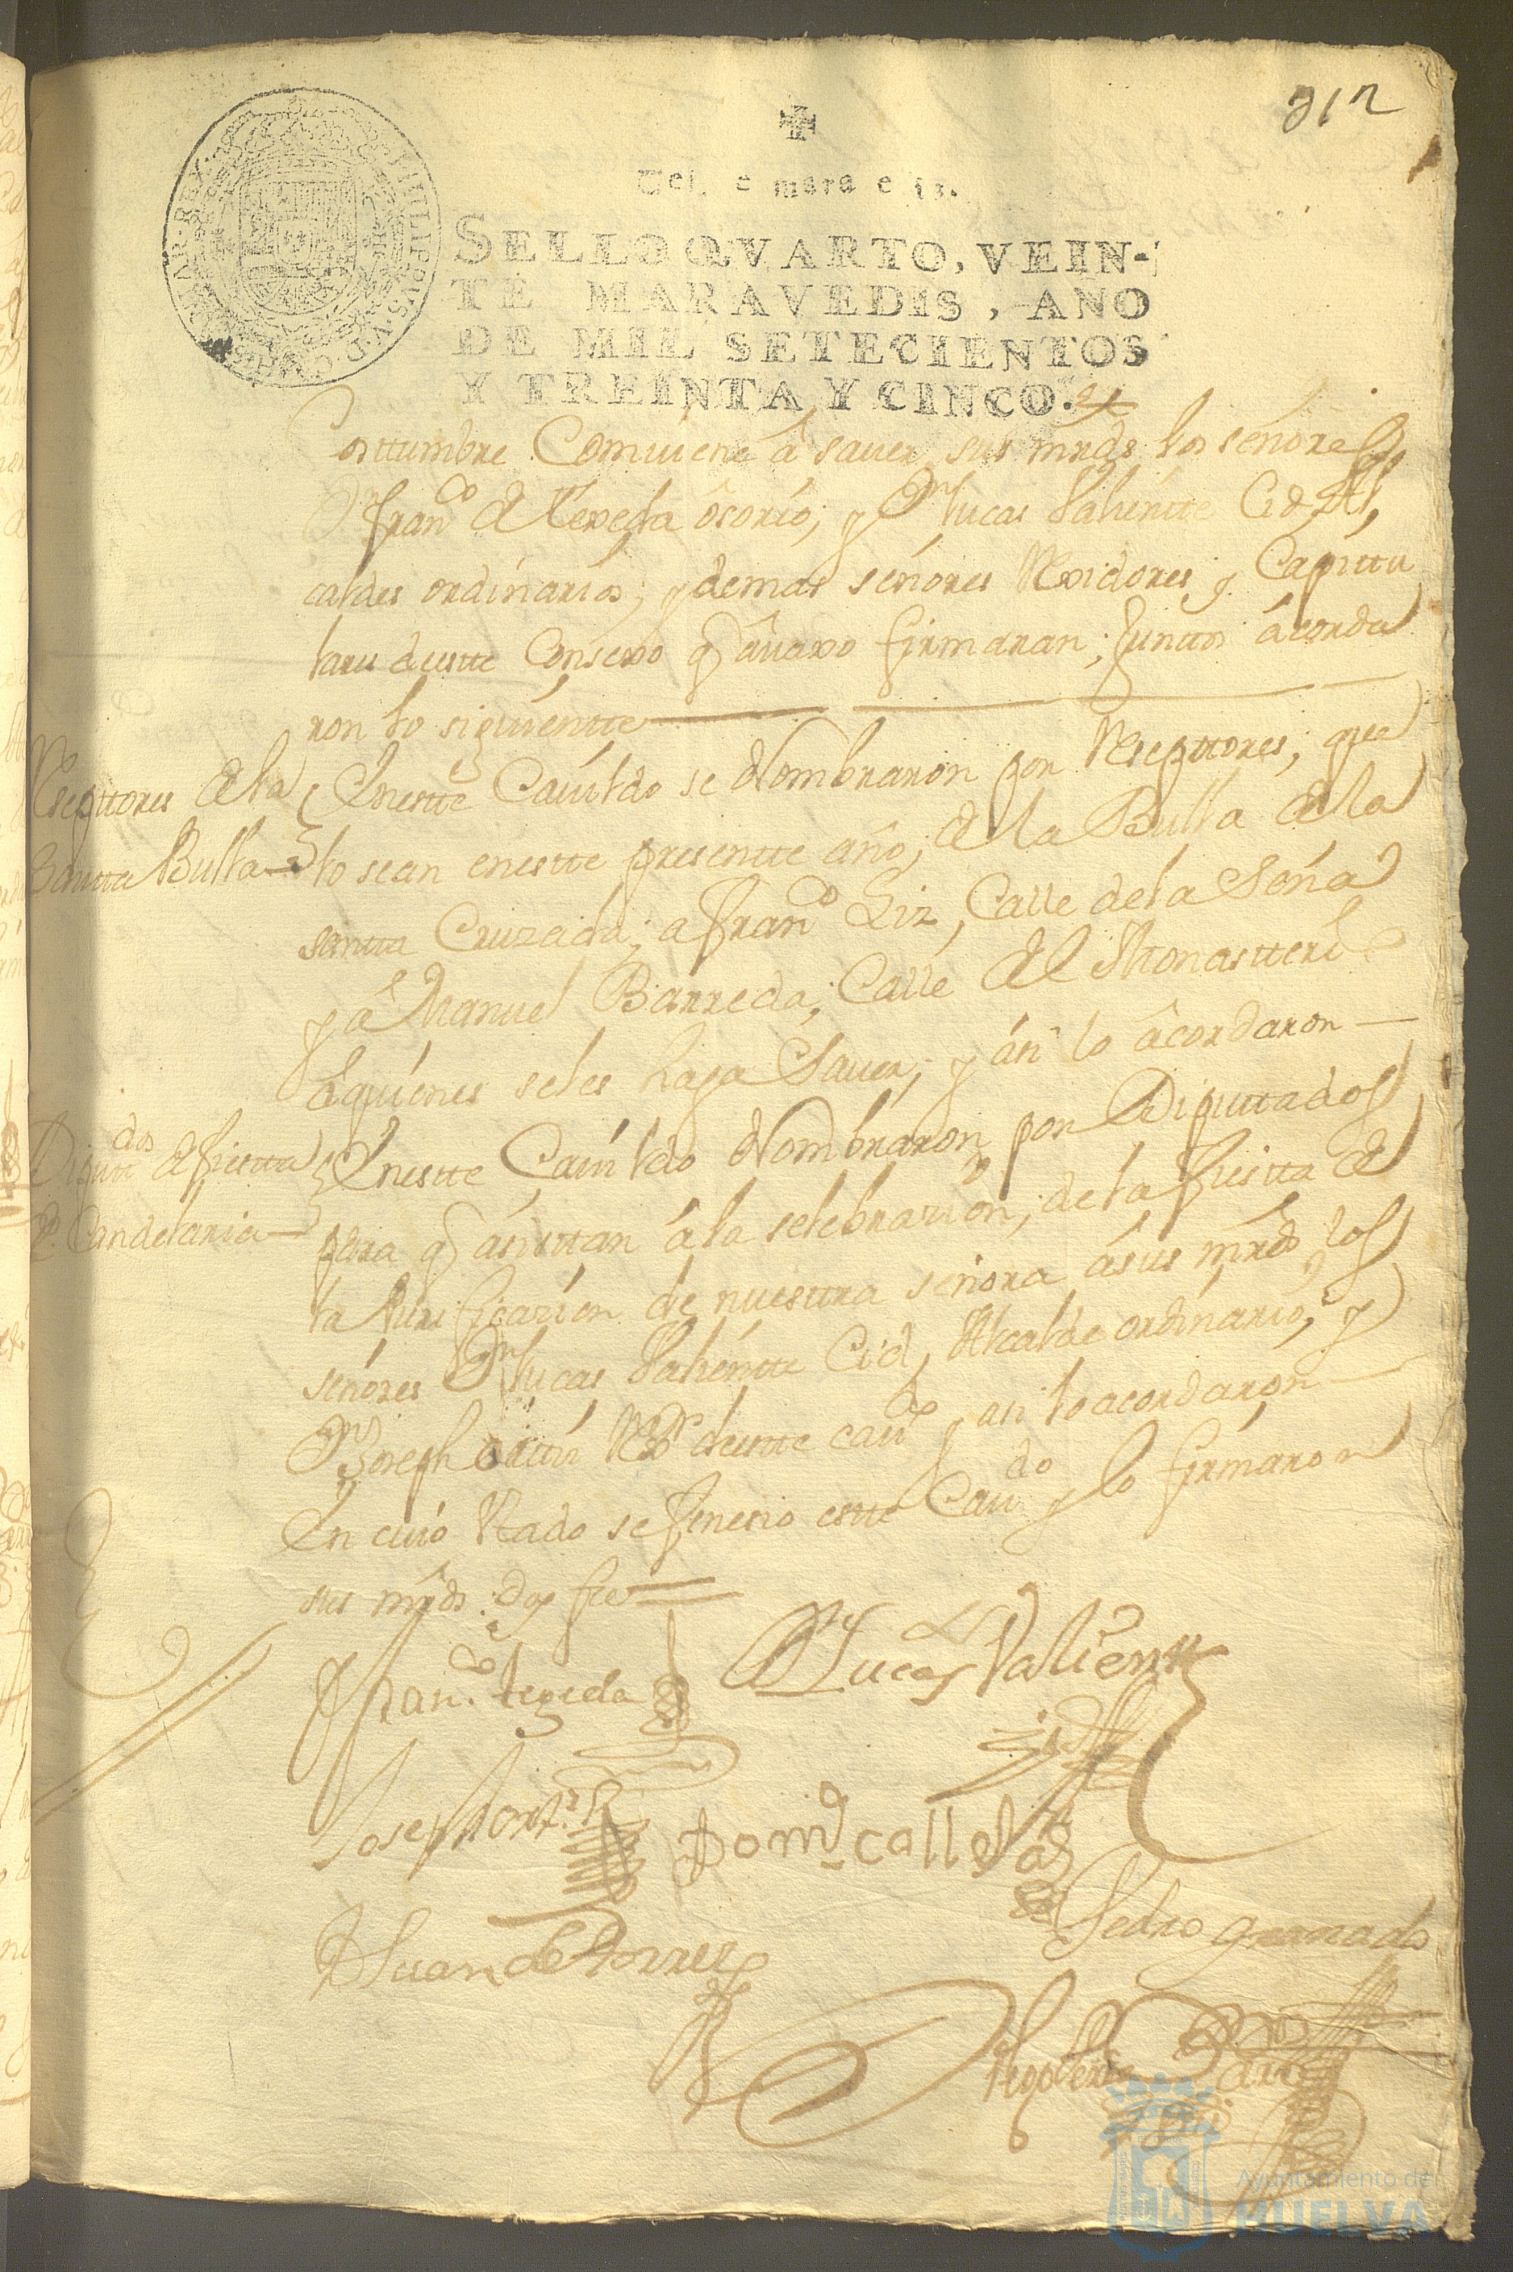 312
SELLO QVARTO, VEIN-
TE MARAVEDIS, AÑO
DE MIL SETECIENTOS
Y TREINTA Y CINCO.
Costtumbre Comuiene â sauer sus mrds los señores
Dn franco de texeda ôsorio; y Dn lucas Valientte Cid Al
caldes ordinarios; y demas señores Rexidores y Capittu
lares desste Consexo q âuaxo firmaran; Junttos âcorda
ron lo siguientte
Reseptores de la
Santta Bulla
Enestte Cauildo se Nombraron por Reseptores; que
lo sean enestte presentte año; de la Bulla de la
santta Cruzada; a franco Liz, Calle de la Seña
y â Manuel Barreda; Calle del Monastterio
âquienes seles haga Sauer; y ási lo âcordaron
Diputtdos de fiestta
Candelaria
Enestte Cauildo Nombraron por Diputtados
para q âsisttan â la selebrazion; de la fiestta de
la Purificazion de nuesttra señora âsus mrds los
señores Dn lucas Valientte Cid, Alcalde ordinario; y
Dn Joseph orttiz Rr desste caudo y asi lo acordaron
En cuio stado se fenesio estte Caudo y lo firmaron
sus mrds doy fee
Franco texeda
Dn Lucas Valiente
Cid
Joseph ortiz
Domo Callexas
Dn Juan de Torres
Pedro granado
Diego
Ayuntamiento de
HUELVA